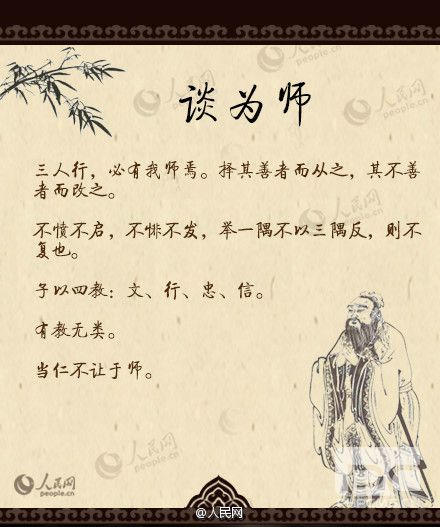 人民网
people.cn
谈为师
三人行，必有我师焉。择其善者而从之，其不善
者而改之。
不愤不启，不悱不发，举一隅不以三隅反，则不
复也。
子以四教：文、行、忠、信。
有教无类。
当仁不让于师。
人民网
people.cn
@人民网